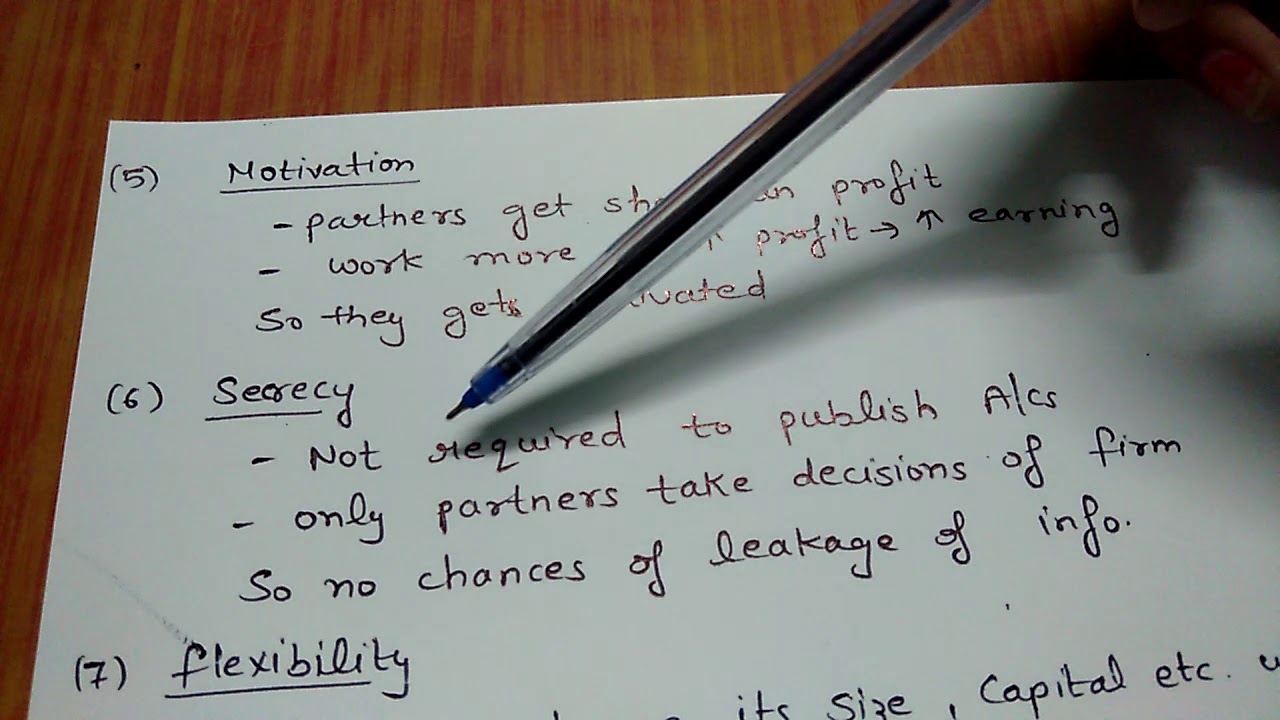 (5) Motivation
- partners get in profit
- work more ↑ profit → ↑ earning
So they gets
(6) Secrecy
- Not required to publish A/cs
- only partners take decisions of firm
So no chances of leakage of info.
(7) flexibility
its size, Capital etc.